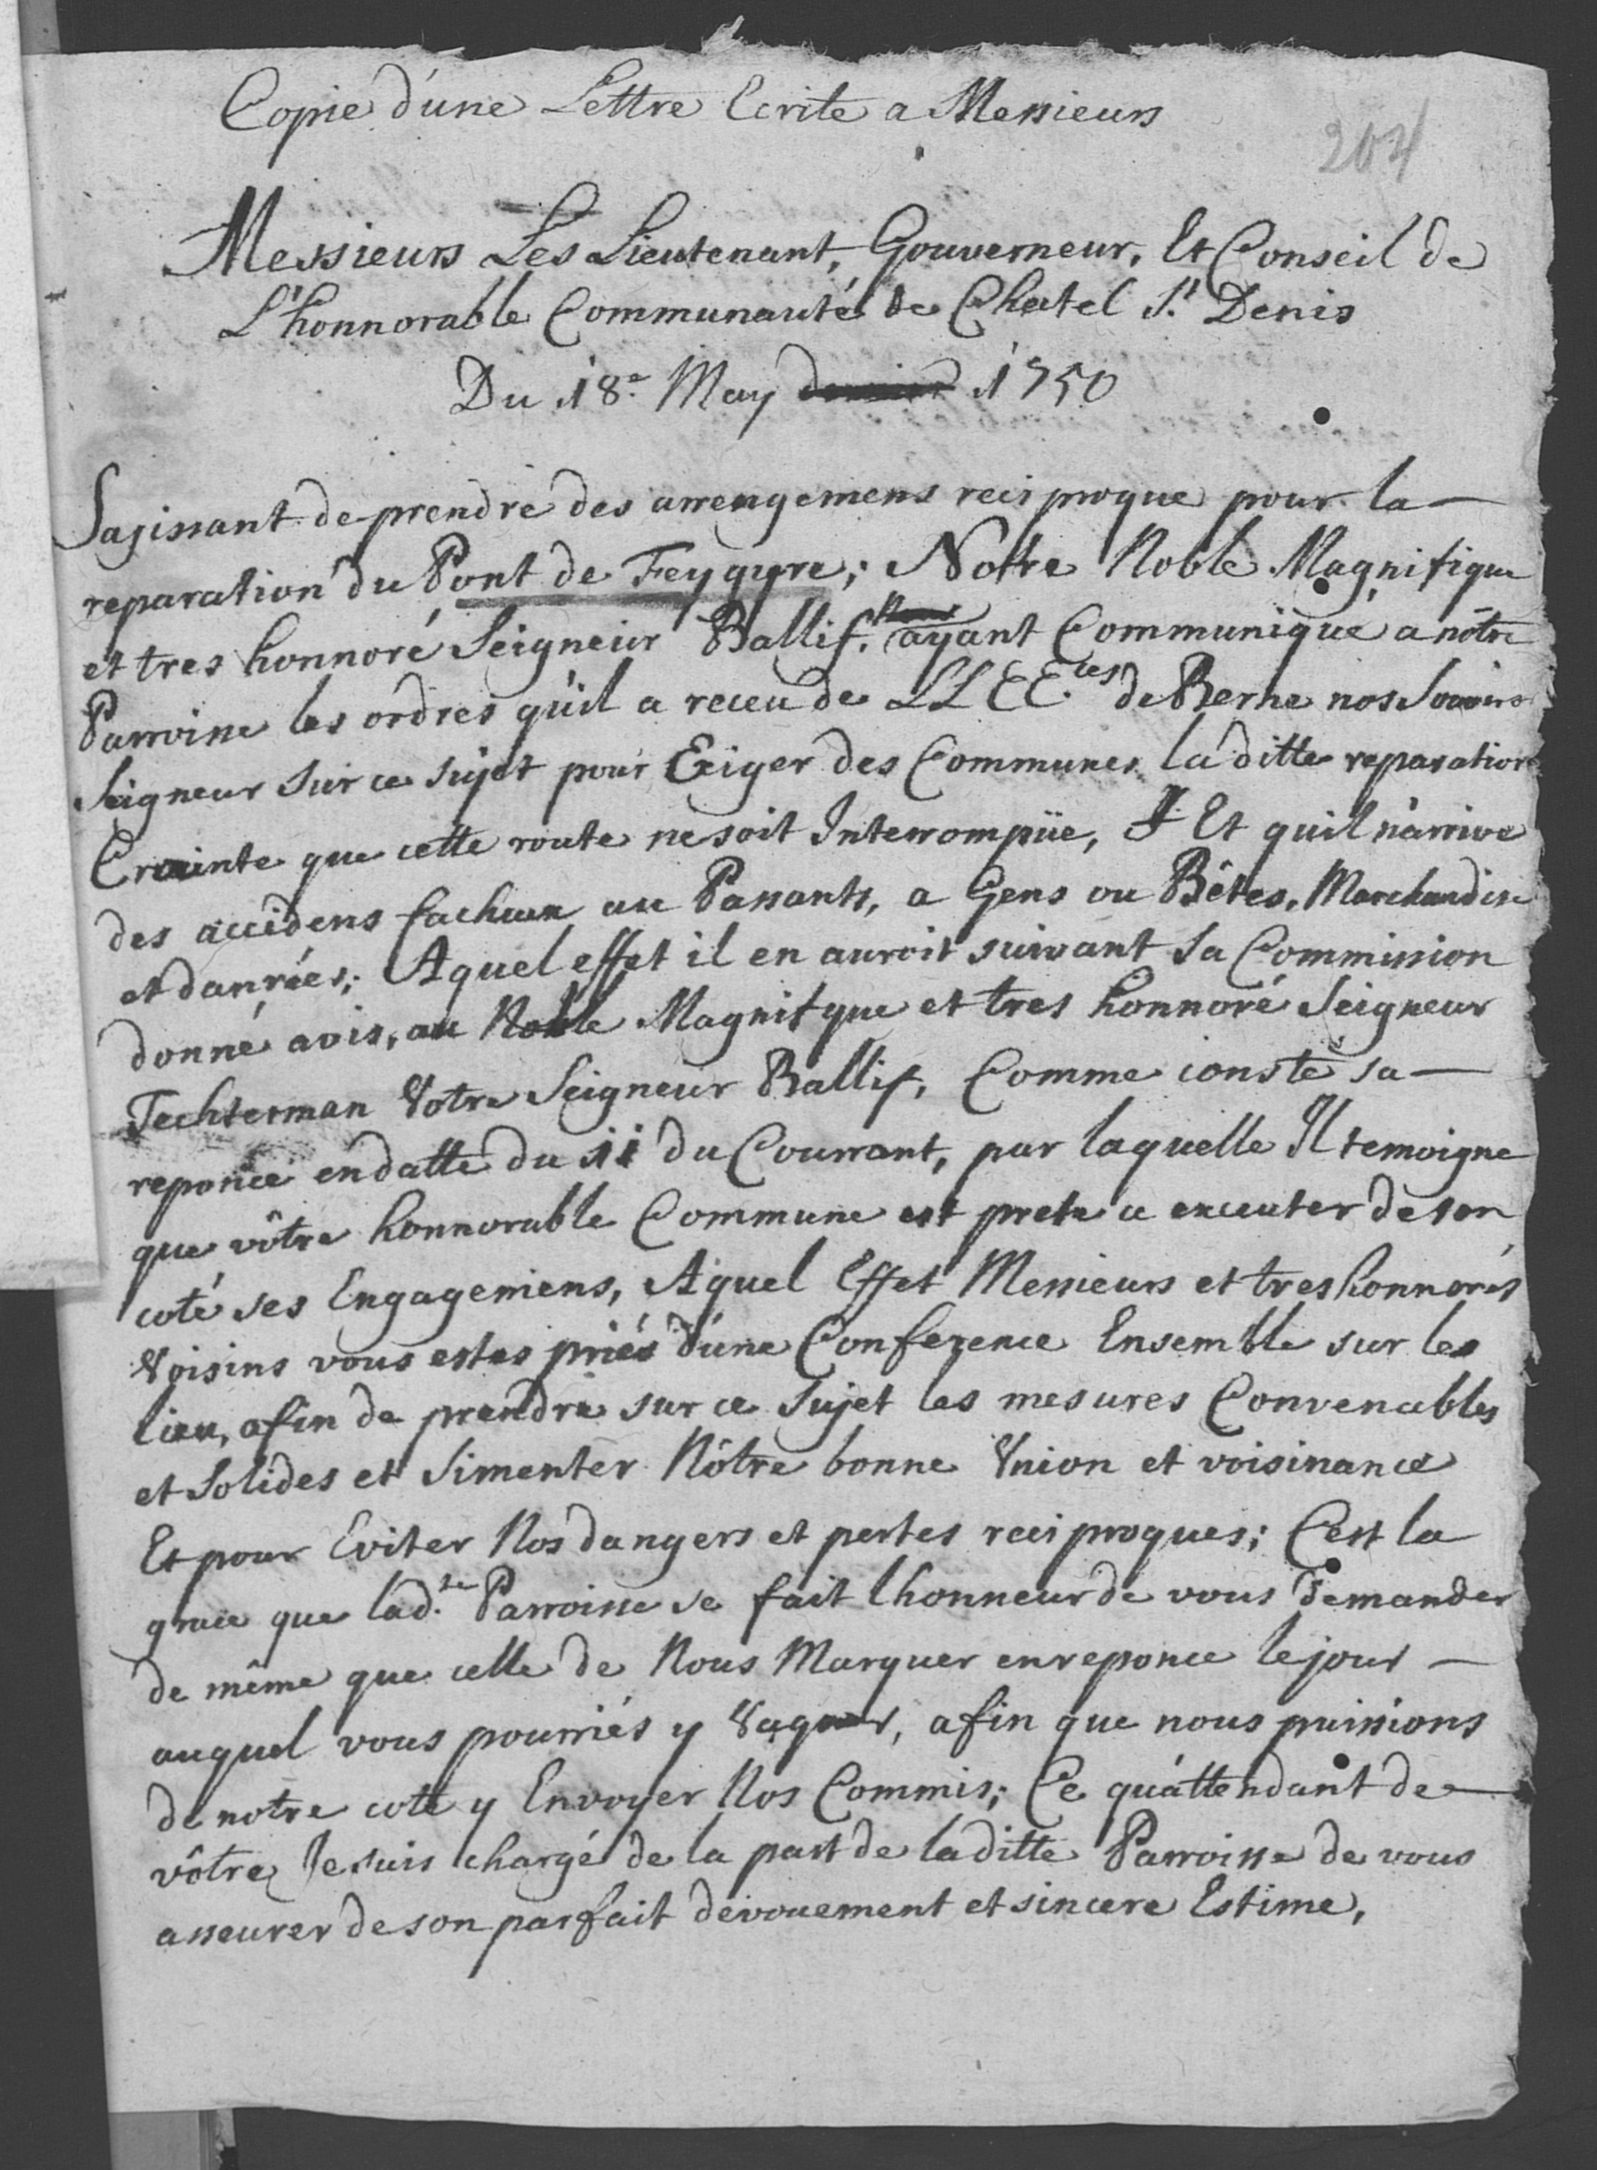 Copie d'une Lettre Ecrite a Messieurs
204
Messieurs Les Lieutenant, Gouverneur, Et Conseil de
L'honnorable Communauté de Chatel St. Denis
Du 18e. May 1750
Sagissant de prendre des arrengemens reciproque pour la
reparation du Pont de Feygyre; Nottre Noble Magnifique
et tres honnoré Seigneur Ballif. ayant Communiqué a nôtre
Parroisse les ordres qu'il a receu de LL EE.ces de Berne nos
Seigneur sur ce sujet pour Exiger des Communes la ditte reparation
Crainte que cette route ne soit Interrompüe, Et quil n'arrive
des accidens facheux au Passants, a Gens ou Bêtes, Marchandise
et danrées; Aquel effet il en auroit suivant sa Commission
donné avis, au Noble Magnifque et tres honnoré Seigneur
Techterman Votre Seigneur Ballif, Comme conste sa
reponce en datte du 11 du Courrant, par laquelle Il temoigne
que vôtre honnorable Commune est prete a executer de son
coté ses Engagemens, Aquel Effet Messieurs et tres honnorés
Voisins vous estes priés d'une Conference Ensemble sur les
lieu, afin de prendre sur ce sujet les mesures Convenables
et Solides et Simenter Nôtre bonne Union et voisinance
Et pour Eviter Nos dangers et pertes reciproques; C'est la
grace que lad.te Parroisse se fait lhonneur de vous demander
de même que celle de Nous Marquer en reponce le jour
auquel vous pourriés y Vaquer, afin que nous puissions
de notre coté y Envoyer Nos Commis; Ce qu'attendant de
vôtre Je suis chargé de la part de laditte Parroisse de vous
asseurer de son parfait devouement et sincere Estime,